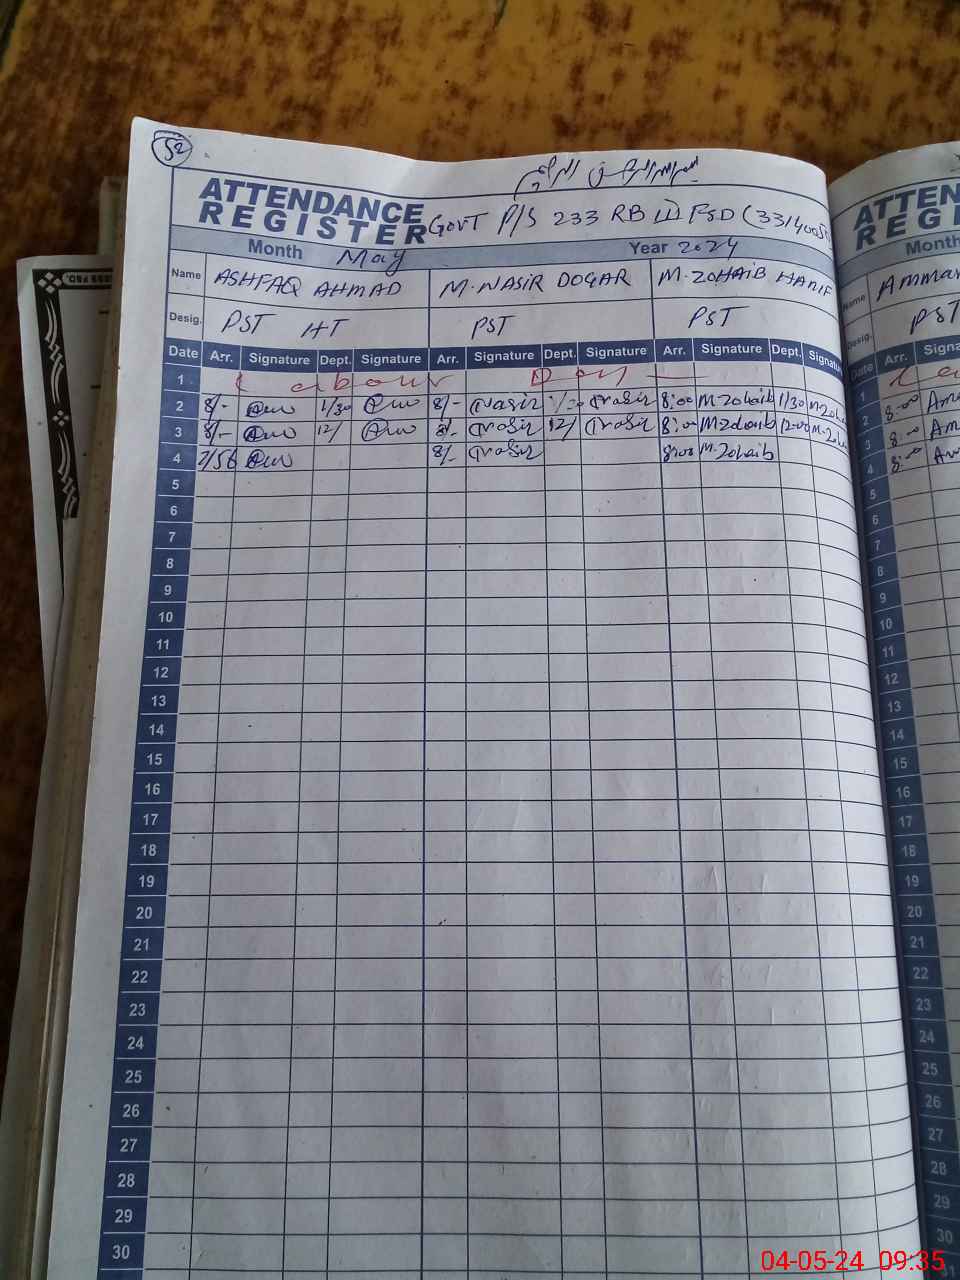 52
بسم اللہ الرحمن الرحیم
ATTENDANCE
REGISTER
GOVT P/S 233 RB III FSD (3314005
Month May Year 2024
Name ASHFAQ AHMAD M. NASIR DOGAR M. ZOHAIB HANIF
Desig. PST HT PST PST
Date Arr. Signature Dept. Signature Arr. Signature Dept. Signature Arr. Signature Dept. Signatu
1 Labour Day
2 8/- 1/30 8/- Nasir Nasir 8:00 M-Zohaib 1/30 M-Zoha
3 8/- 12/ 8/- Nasir 12/ Nasir 8:00 M-Zohaib 12:00 M-Zoha
4 7/56 8/- Nasir 8:00 M-Zohaib
5
6
7
8
9
10
11
12
13
14
15
16
17
18
19
20
21
22
23
24
25
26
27
28
29
30
ATTEN
REGI
Month
Name Ammar
Desig. PST
Date Arr. Signa
1
2 8:00 Am
3 8:00 Am
4 8:00 Am
5
6
7
8
9
10
11
12
13
14
15
16
17
18
19
20
21
22
23
24
25
26
27
28
29
30
31
04-05-24 09:35